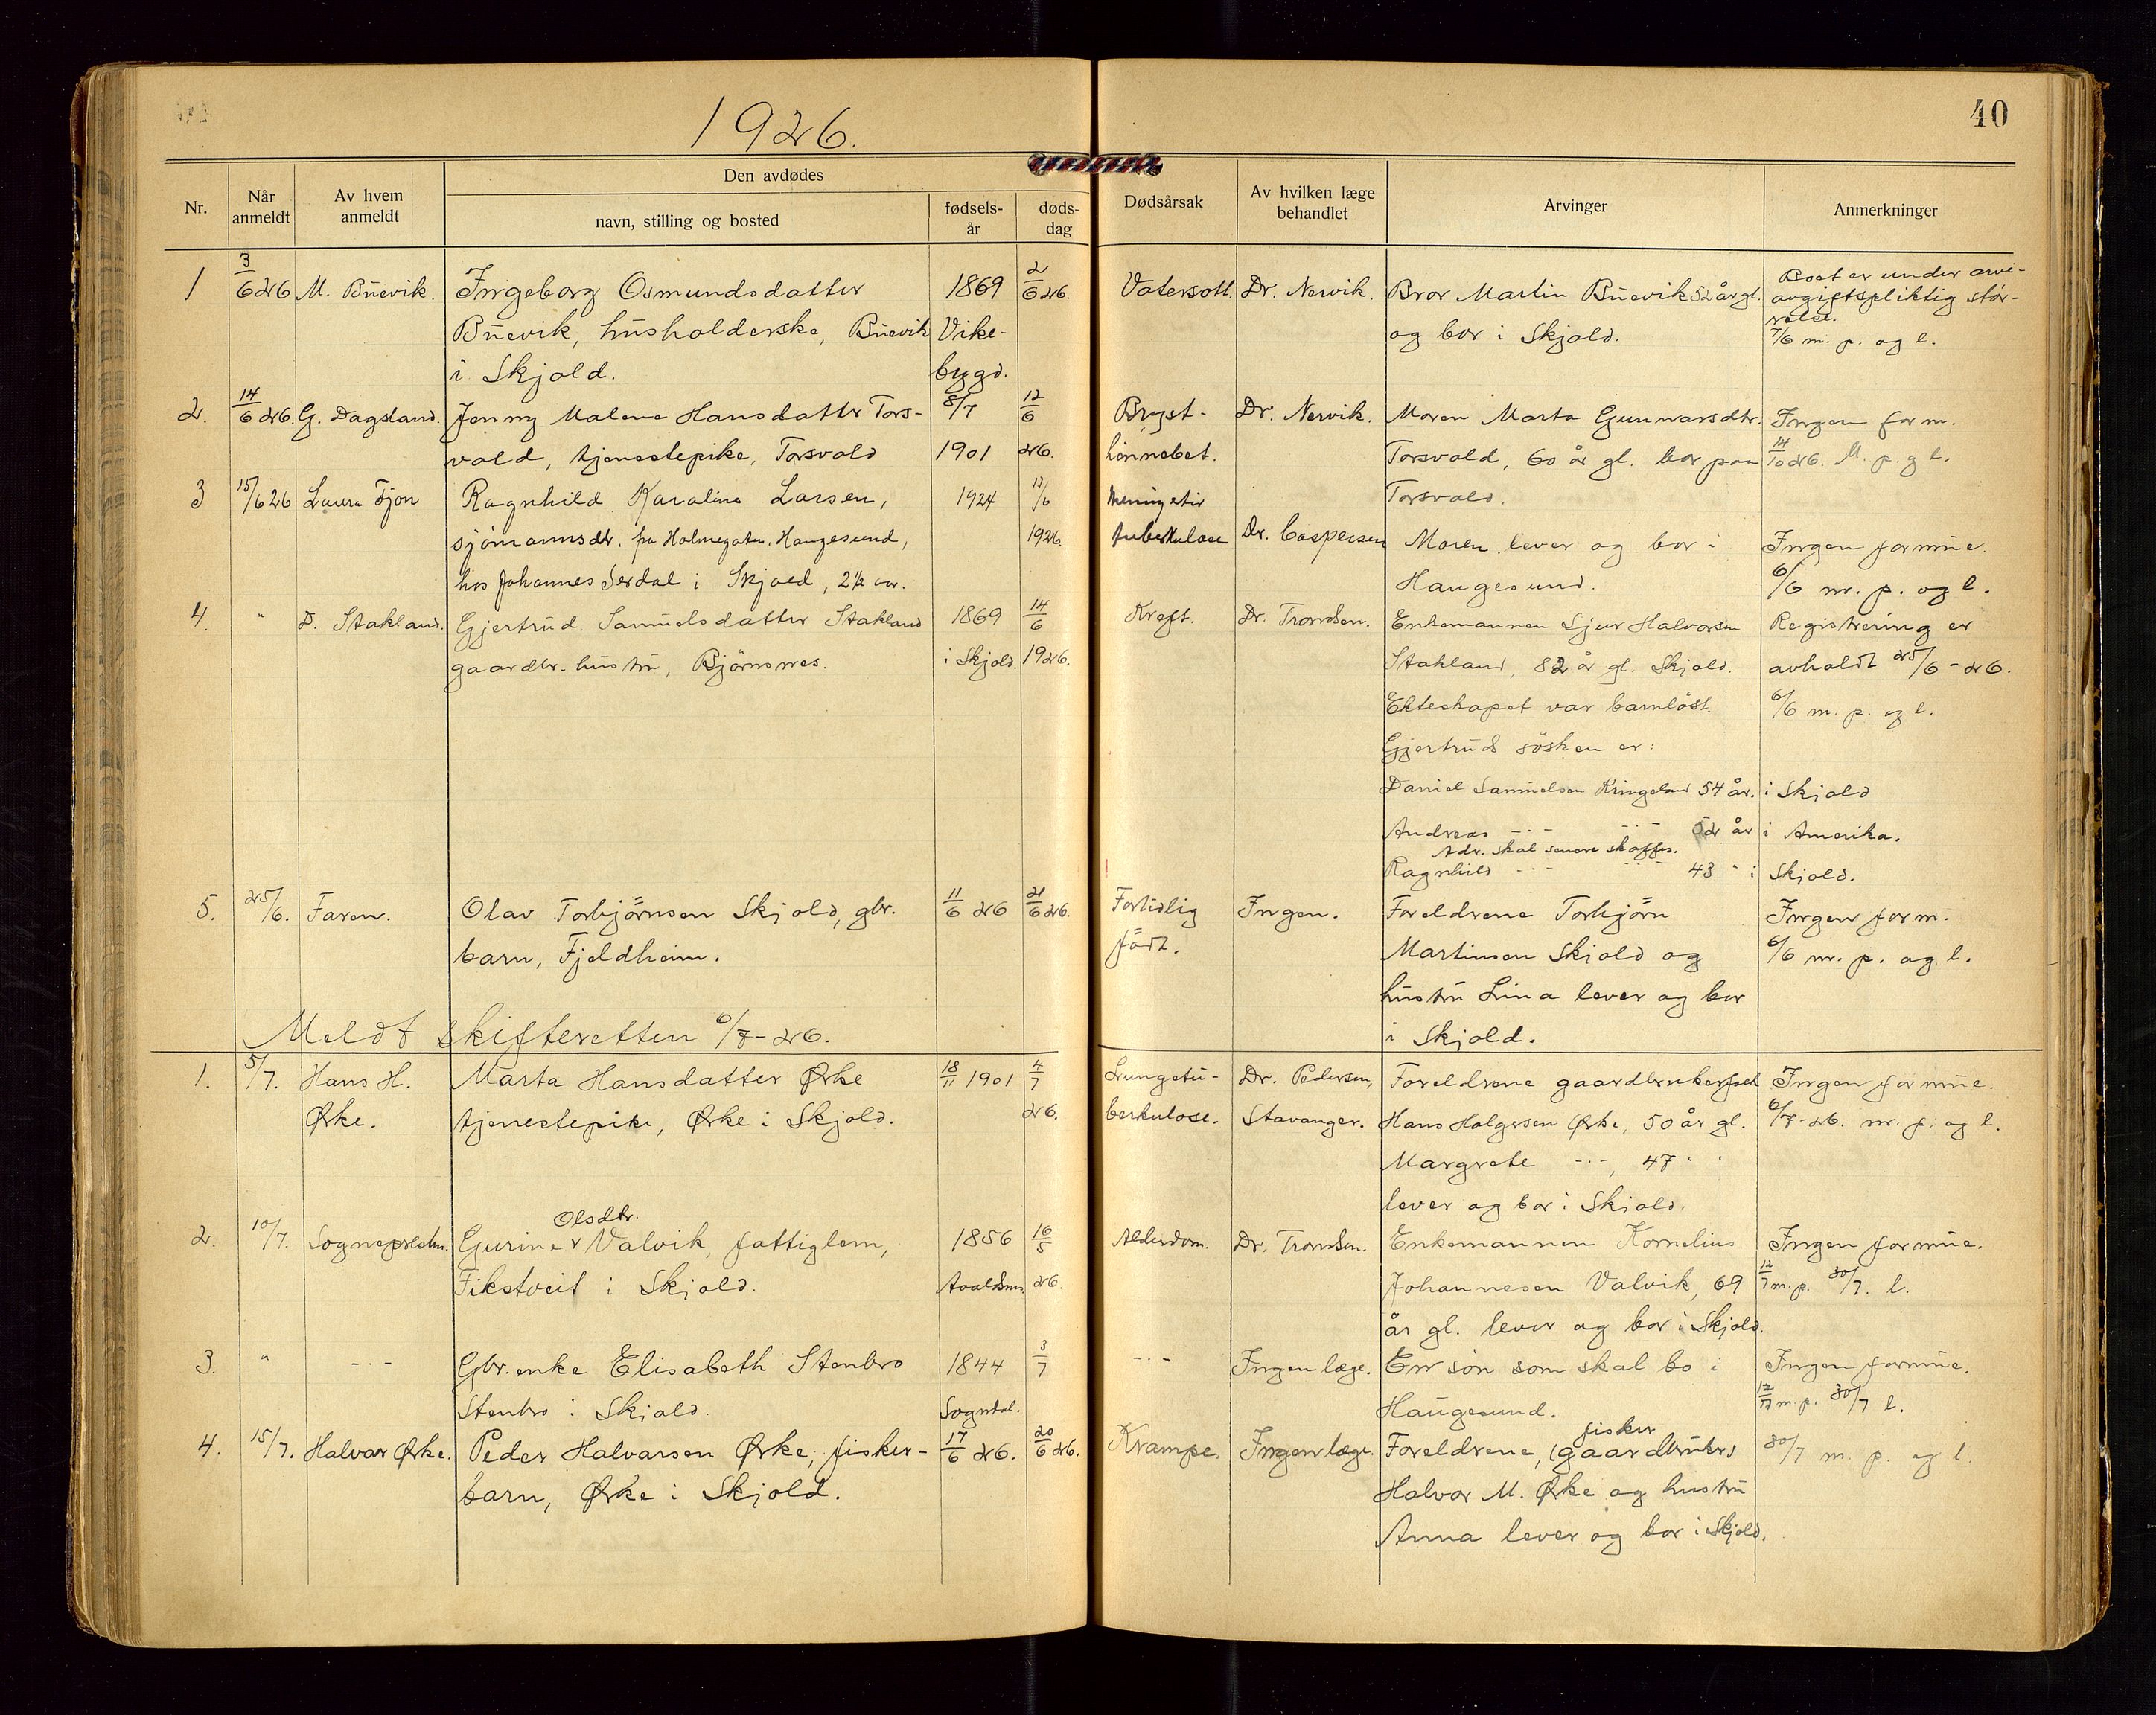 1926.
40
Nr.
Når anmeldt
Av hvem anmeldt
Den avdødes
navn, stilling og bosted
fødsels-år
døds-dag
Dødsårsak
Av hvilken læge behandlet
Arvinger
Anmerkninger
1 3/6 26 M. Buevik. Ingeborg Osmundsdatter 1869 2/6 26. Vatersott. Dr. Nervik. Bror Martin Buevik 52 år gl. Boet er under arvi-
avgiftspliktig stör-
relse.
Buevik, husholderske, Buevik Vike- og bor i Skjold. 7/6 m. p. og l.
i Skjold. bygd.
2. 14/6 26. G. Dagsland. Jenny Malene Hansdatter Tors- 8/7 12/6 Bryst- Dr. Nervik. Moren Marta Gunnarsdtr. Ingen form.
vold, tjenestepike, Torsvold 1901 26. hinnebet. Torsvold, 60 år gl. bor paa 14/10 26. M. p. g l.
3 15/6 26 Laura Tjon Ragnhild Karaline Larsen, 1924 11/6 Meningetis Torsvold.
sjömannsdtr. fra Holmegaten, Haugesund, 1926. tuberkulose Dr. Caspersen Moren lever og bor i Ingen formue.
hos Johannes Serdal i Skjold, 2½ aar. Haugesund. 6/6 m. p. og l.
4. " D. Stakland. Gjertrud Samuelsdatter Stakland 1869 14/6 Kreft. Dr. Tromsen. Enkemannen Sjur Halvorsen Registrering er
gaardbr. hustru, Björnsnes. i Skjold. 1926. Stakland, 82 år gl. Skjold. avholdt 25/6-26.
Ekteskapet var barnlöst. 6/6 m. p. og l.
Gjertruds sösken er:
Daniel Samuelsen Kringeland 54 år. i Skjold
Andreas -"- -"- 52 år i Amerika.
Adr. skal senere skaffes.
Ragnhild -"- -"- 43 " i Skjold.
5. 25/6. Faren. Olav Torbjörnsen Skjold, gbr. 11/6 26 21/6 26. Fortidlig Ingen. Foreldrene Torbjörn Ingen form.
barn, Fjeldheim. födt. Martinsen Skjold og 6/6 m. p. og l.
hustru Lina lever og bor
i Skjold.
Meldt skifteretten 6/7-26.
1. 5/7. Hans H. Marta Hansdatter Ørke 18/11 1901 4/7 Lungetu- Dr. Pedersen, Foreldrene gaardbrukerfolk Ingen formue.
Ørke. tjenestepike, Ørke i Skjold. 26. berkulose. Stavanger. Hans Holgersen Ørke, 50 år gl. 6/7-26. m. p. og l.
Margrete -"-, 47 " "
lever og bor i Skjold.
Olsdtr.
2. 10/7. Sognepresten. Gurine Valvik, fattiglem, 1856 16/5 Alderdom. Dr. Tromsen. Enkemannen Kornelius Ingen formue.
Fikstveit i Skjold. 26. Johannesen Valvik, 69 12/7 m. p. 30/7. l.
år gl. lever og bor i Skjold.
3. " -"- Gbr. enke Elisabeth Stenbro 1844 3/7 -"- Ingen læge. En sön som skal bo i Ingen formue.
Stenbro i Skjold. Sogndal. Haugesund. 12/7 m. p. 30/7 l.
4. 15/7. Halvor Ørke. Peder Halvorsen Ørke, fisker- 17/6 26. 20/6 26. Krampe. Ingen læge. Foreldrene, (gaardbruker) fisker 30/7 m. p. og l.
barn, Ørke i Skjold. Halvor M. Ørke og hustru
Anna lever og bor i Skjold.